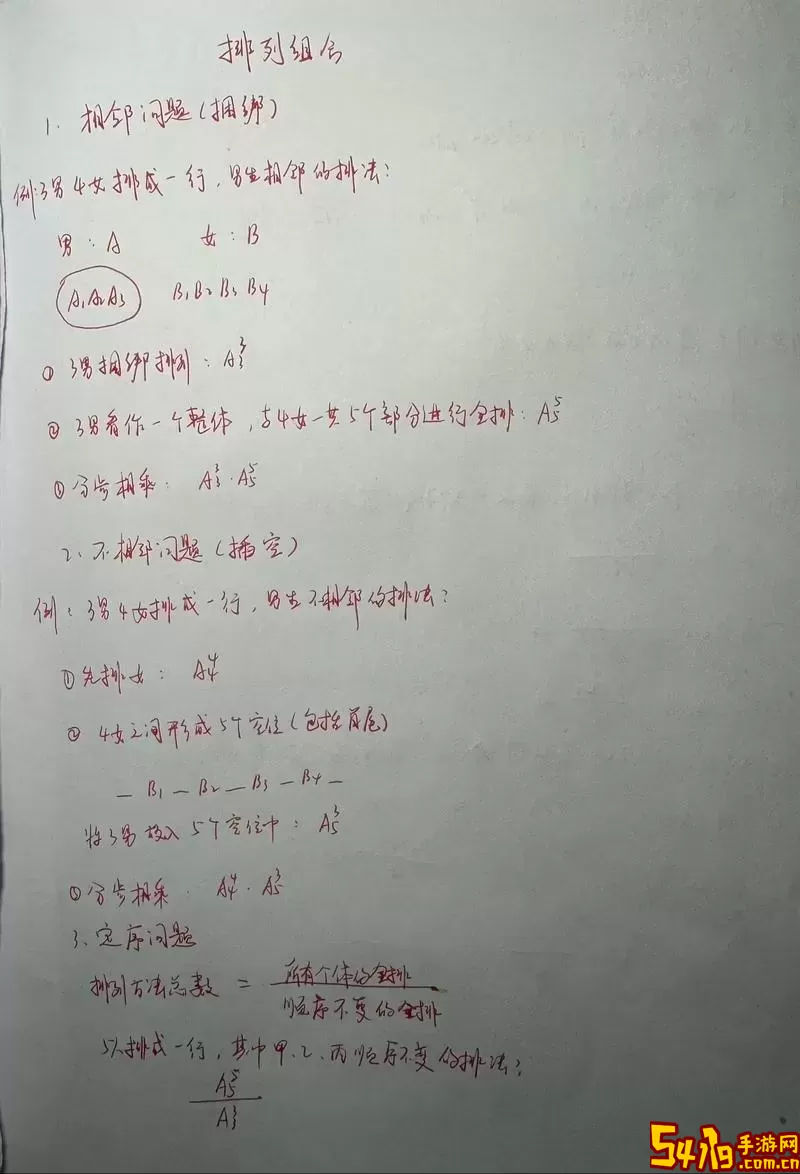 排列组合
1. 相邻问题(捆绑)
例:3男4女排成一行,男生相邻的排法:
男:A 女:B
A₁A₂A₃ B₁B₂B₃B₄
① 3男捆绑排列:A₃³
② 3男看作一个整体,与4女一共5个部分进行全排:A₅⁵
③ 分步相乘:A₃³·A₅⁵
2、不相邻问题(插空)
例:3男4女排成一行,男生不相邻的排法:
① 先排女:A₄⁴
② 4女之间形成5个空位(包括首尾)
— B₁ — B₂ — B₃ — B₄ —
将3男放入5个空位中:A₅³
③ 分步相乘 A₄⁴·A₅³
3、定序问题
排列方法总数 = 所有个体的全排
顺序不变的全排
5人排成一行,其中甲、乙、丙顺序不变的排法:
A₅⁵
A₃³
5419手游网
.com.cn